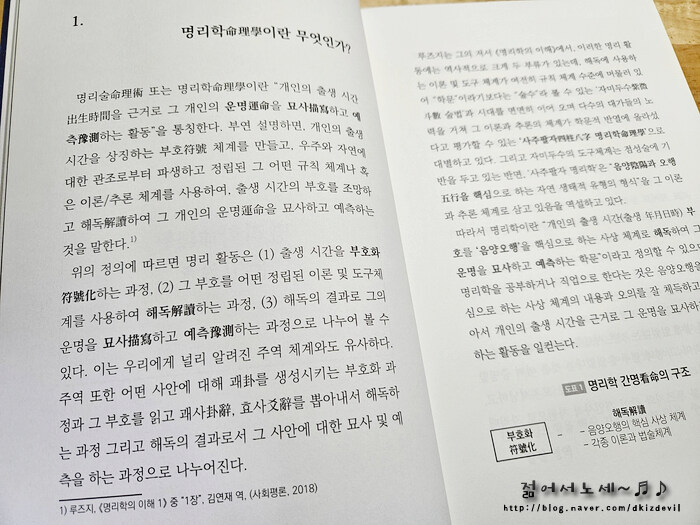 1.
명리학命理學이란 무엇인가?
명리술命理術 또는 명리학命理學이란 “개인의 출생 시간
出生時間을 근거로 그 개인의 운명運命을 묘사描寫하고 예
측豫測하는 활동”을 통칭한다. 부연 설명하면, 개인의 출생
시간을 상징하는 부호符號 체계를 만들고, 우주와 자연에
대한 관조로부터 파생하고 정립된 그 어떤 규칙 체계나 혹
은 이론/추론 체계를 사용하여, 출생 시간의 부호를 조망하
고 해독解讀하여 그 개인의 운명運命을 묘사하고 예측하는
것을 말한다.1)
위의 정의에 따르면 명리 활동은 (1) 출생 시간을 부호화
符號化하는 과정, (2) 그 부호를 어떤 정립된 이론 및 도구체
계를 사용하여 해독解讀하는 과정, (3) 해독의 결과로 그의
운명을 묘사描寫하고 예측豫測하는 과정으로 나누어 볼 수
있다. 이는 우리에게 널리 알려진 주역 체계와도 유사하다.
주역 또한 어떤 사안에 대해 괘卦를 생성시키는 부호화 과
정과 그 부호를 읽고 괘사卦辭, 효사爻辭를 뽑아내서 해독하
는 과정 그리고 해독의 결과로서 그 사안에 대한 묘사 및 예
측을 하는 과정으로 나누어진다.
1) 루즈지, 《명리학의 이해 1》 중 “1장”, 김연재 역, (사회평론, 2018)
루즈지는 그의 저서 《명리학의 이해》에서, 이러한 명리 활
동에는 역사적으로 크게 두 부류가 있는데, 해독에 사용하
는 이론 및 도구 체계가 여전히 규칙 체계 수준에 머물러 있
어 “학문”이라기보다는 “술수”라 볼 수 있는 ‘자미두수紫微
斗數 술법’과 시대를 면면히 이어 오며 다수의 대가들의 노
력을 거쳐 그 이론과 추론의 체계가 학문적 반열에 올랐
다고 평가할 수 있는 ‘사주팔자四柱八字 명리학命理學’으로
대별하고 있다. 그리고 자미두수의 도구체계는 점성술에 기
반을 두고 있는 반면, ‘사주팔자 명리학’은 “음양陰陽과 오행
五行을 핵심으로 하는 자연 생태적 유행의 형식”을 그 이론
과 추론 체계로 삼고 있음을 역설하고 있다.
따라서 명리학이란 “개인의 출생 시간(출생 年月日時) 부
호를 ‘음양오행’을 핵심으로 하는 사상 체계로 해독하여 그
운명을 묘사하고 예측하는 학문”이라고 정의할 수 있으며
명리학을 공부하거나 직업으로 한다는 것은 음양오행을
심으로 하는 사상 체계의 내용과 오의를 잘 체득하고
아서 개인의 출생 시간을 근거로 그 운명을 묘사하
하는 활동을 일컫는다.
도표 1 명리학 간명看命의 구조
부호화
符號化
해독解讀
- 음양오행의 핵심 사상 체계
- 각종 이론과 법술체계
젊어서노세~♬♪
http://blog.naver.com/dkizdevil